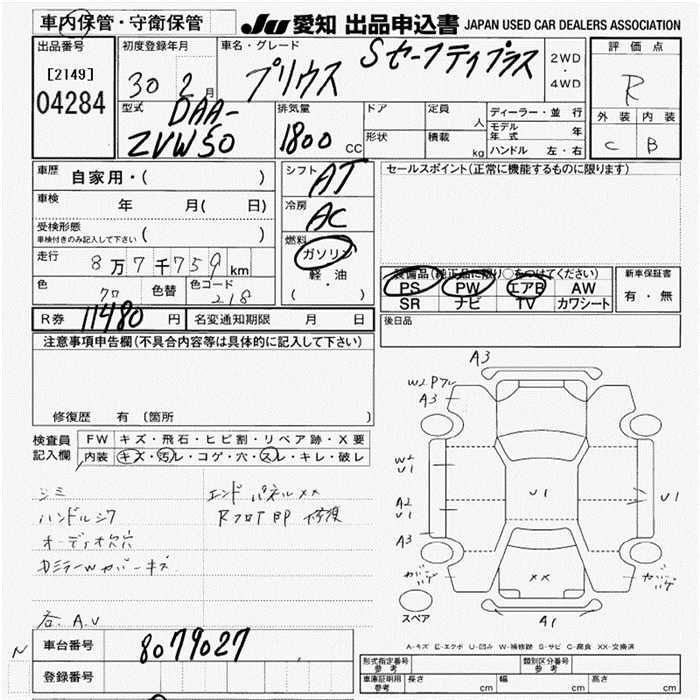 車内保管・守衛保管
JU 愛知 出品申込書 JAPAN USED CAR DEALERS ASSOCIATION
出品番号
[2149]
04284
初度登録年月
30 2 月
車名・グレード
プリウス Sセーフティプラス
2WD
・
4WD
評価点
R
外装 内装
C B
型式
DAA-
ZVW50
排気量
1800 CC
ドア
定員
人
形状
積載
kg
ディーラー・並行
モデル年式 年
ハンドル 左・右
車歴
自家用・( )
車検
年 月( 日)
受検形態
車検付きのみ記入して下さい ( )
走行
8万7千759 km
色
クロ
色替
色コード
218
シフト
AT
冷房
AC
燃料
ガソリン
軽・油
( )
セールスポイント(正常に機能するものに限ります)
装備品(純正品に限り○をつけてください)
PS PW エアB AW
SR ナビ TV カワシート
新車保証書
有・無
R券 11480 円
名変通知期限 月 日
後日品
注意事項申告欄(不具合内容等は具体的に記入して下さい)
修復歴 有 〔箇所 〕
検査員
記入欄
FW キズ・飛石・ヒビ割・リペア跡・X要
内装 キズ・汚レ・コゲ・穴・スレ・キレ・破レ
シミ
ハンドルシワ
オーディオ欠穴
エンドパネルXX
RフロT部 修復
A3
W2 Pフレ
A3
W2
U1
A2
U1
A3
U1
U1
カバーハゲ
XX
カバーハゲ
A1
スペア
A-キズ E-エクボ U-凹み W-補修跡 S-サビ C-腐食 XX-交換済
N
車台番号
8079027
登録番号
形式指定番号
参考
類別区分番号
参考
車庫証明用
参考
長さ cm
幅 cm
高さ cm